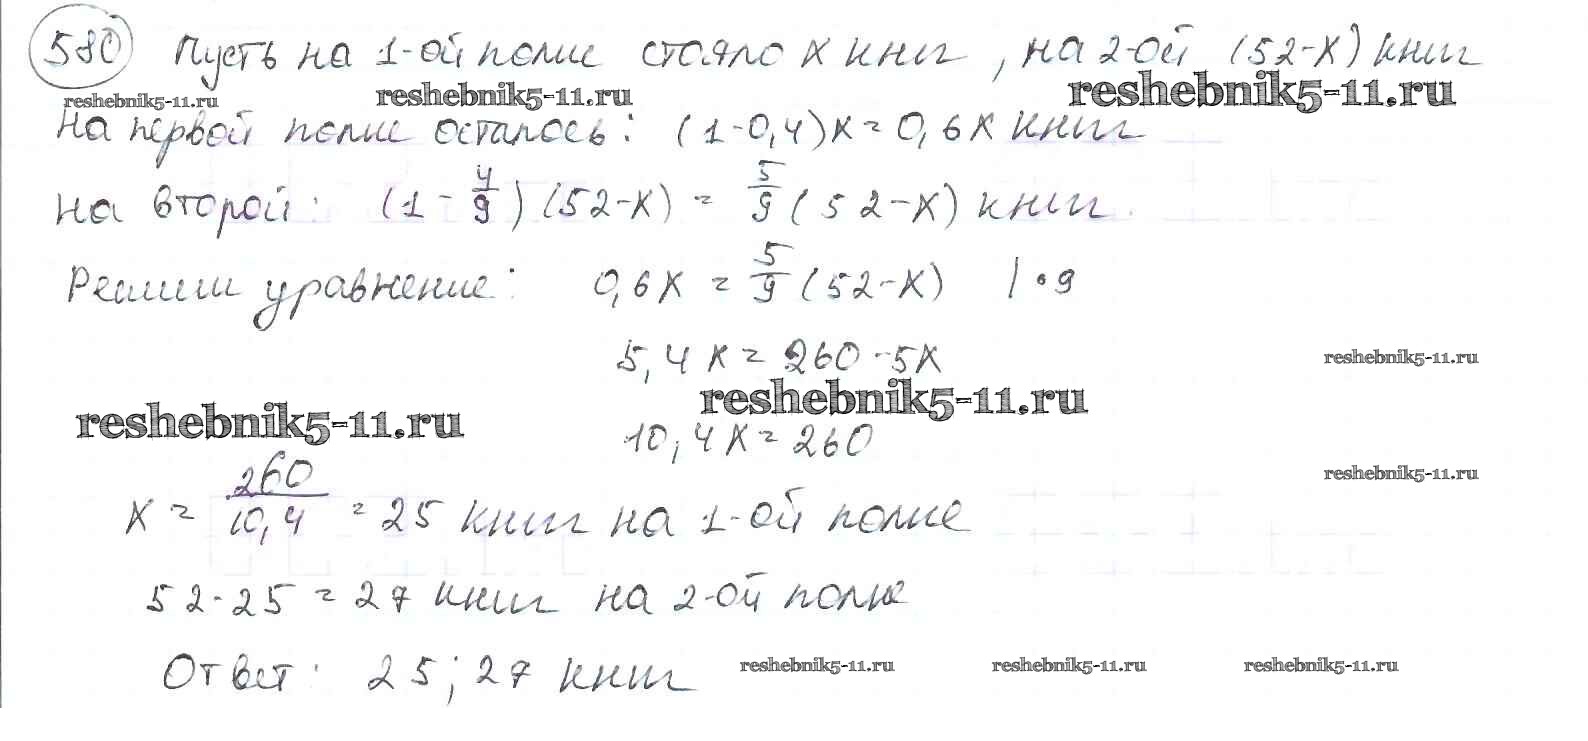 580 Пусть на 1-ой полке стояло x книг, на 2-ой (52-x) книг
reshebnik5-11.ru reshebnik5-11.ru reshebnik5-11.ru
На первой полке осталось: (1-0,4)x=0,6x книг
на второй: (1-4/9)(52-x) = 5/9(52-x) книг.
Решим уравнение: 0,6x = 5/9(52-x) |•9
5,4x=260-5x
reshebnik5-11.ru
reshebnik5-11.ru reshebnik5-11.ru
10,4x=260
reshebnik5-11.ru
x = 260/10,4 = 25 книг на 1-ой полке
52-25=27 книг на 2-ой полке
Ответ: 25; 27 книг
reshebnik5-11.ru reshebnik5-11.ru reshebnik5-11.ru